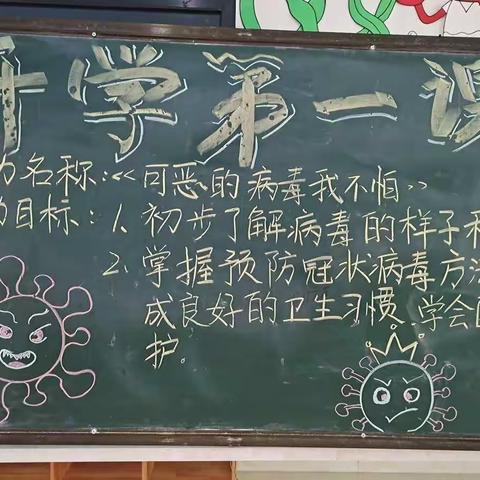 开学第一课
动名称:《可恶的病毒我不怕》
动目标:1、初步了解病毒的样子和
2、掌握预防冠状病毒方法
成良好的卫生习惯,学会自
护。